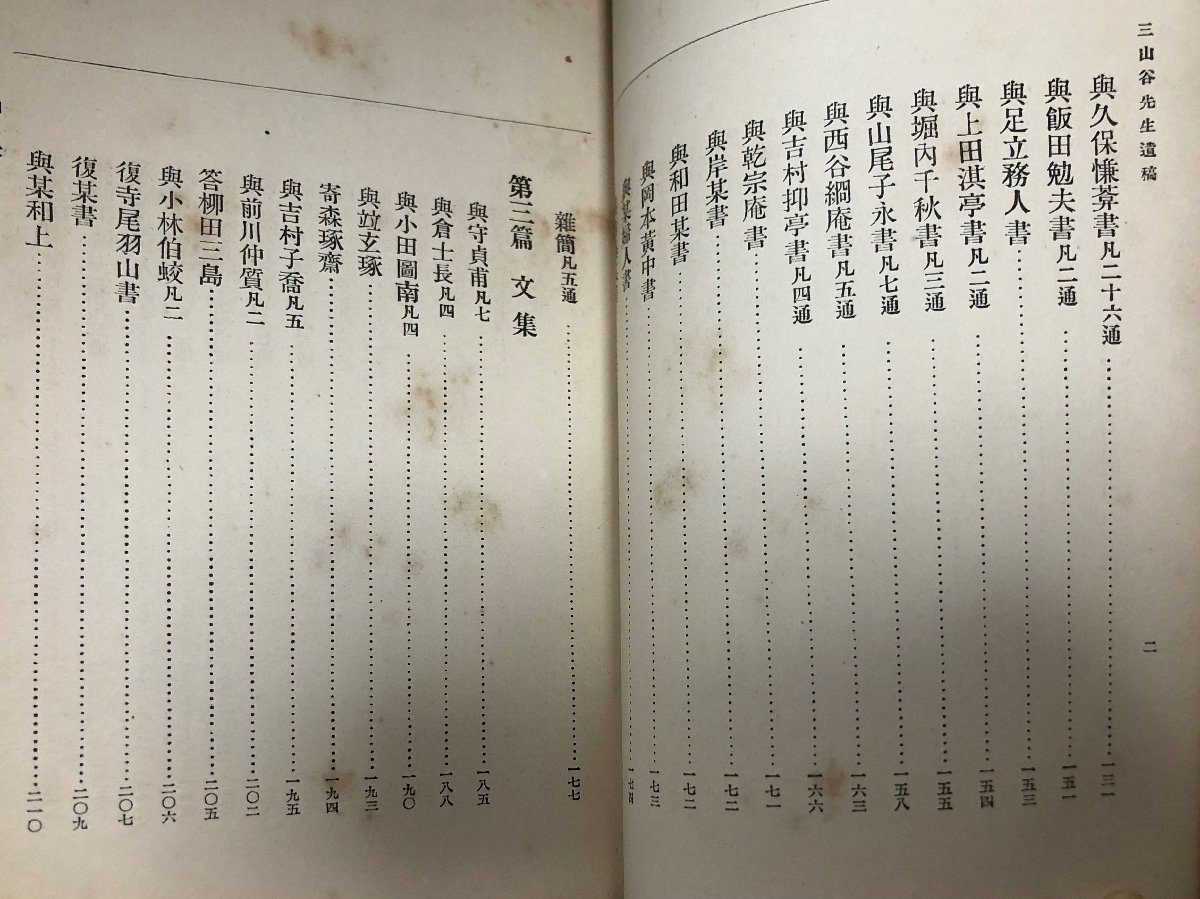 三山谷先生遺稿
二
與久保慊莾書凡二十六通……一三一
與飯田勉夫書凡二通……一五一
與足立務人書……一五三
與上田淇亭書凡二通……一五四
與堀內千秋書凡三通……一五五
與山尾子永書凡七通……一五八
與西谷綱庵書凡五通……一六三
與吉村抑亭書凡四通……一六六
與乾宗庵書……一七一
與岸某書……一七二
與和田某書……一七二
與岡本黃中書……一七三
人書……一七四
雜簡凡五通……一七七
第三篇 文集
與守貞甫凡七……一八五
與倉士長凡四……一八八
與小田圖南凡四……一九〇
與竝玄琢……一九三
寄森琢齋……一九四
與吉村子喬凡五……一九五
與前川仲質凡二……二〇二
答柳田三島……二〇五
與小林伯蛟凡二……二〇六
復寺尾羽山書……二〇七
復某書……二〇九
與某和上……二一〇